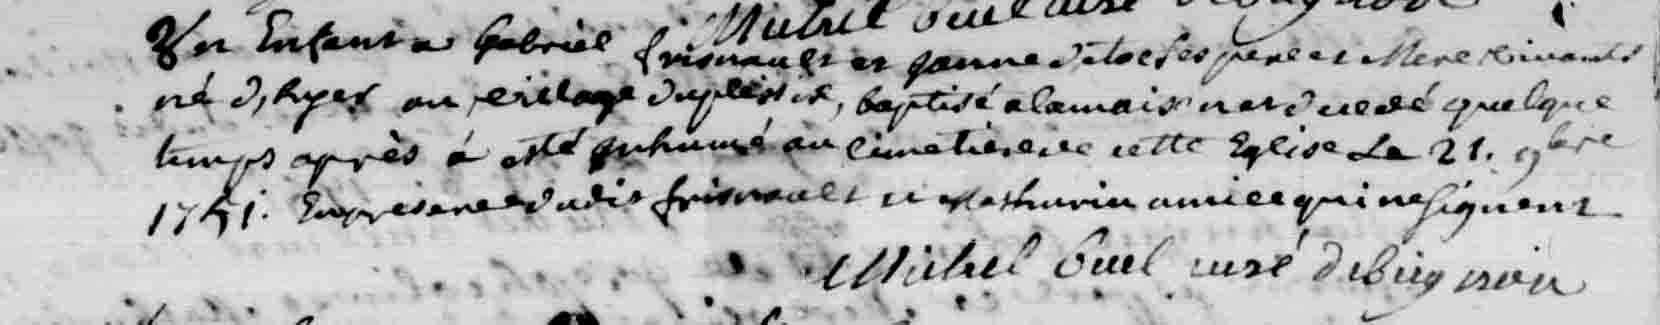 Un Enfant a Gabriel frisnault et janne pere et Mere vivants
né d'hyer au village duplessix, baptisé alamaison et decedé quelque
temps après à esté jnhumé au cimetiere de cette Eglise Le 21. 9bre
1751. Enpresence dudit frisnault et Mathurin amice qui ne signent
Michel curé